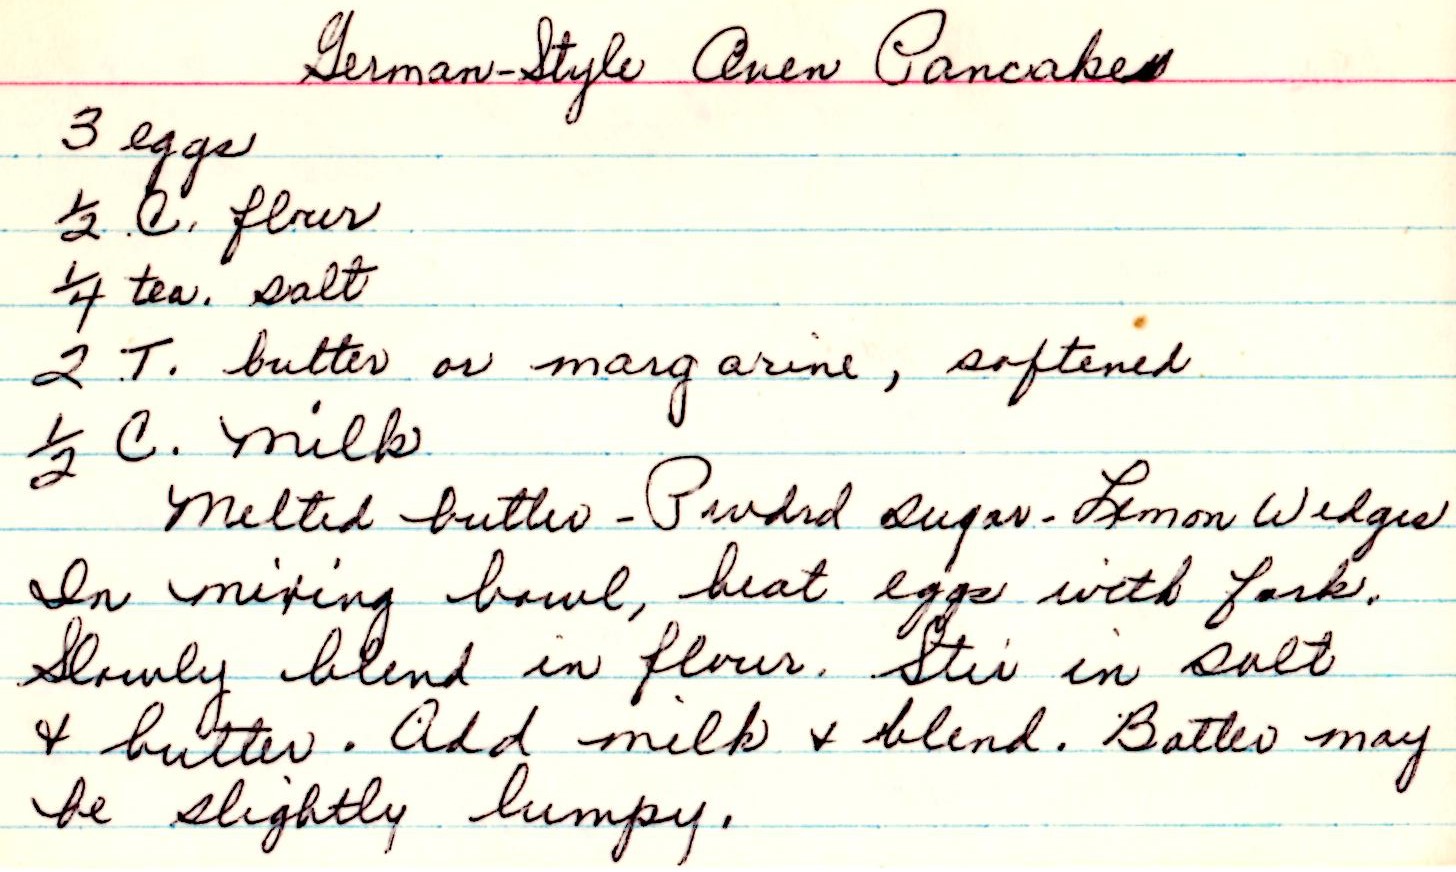 German-Style Oven Pancakes
3 eggs
1/2 C. flour
1/4 tea. salt
2 T. butter or margarine, softened
1/2 C. Milk
Melted butter - Pwdrd sugar - Lemon Wedges
In mixing bowl, beat eggs with fork.
Slowly blend in flour. Stir in salt
& butter. Add milk & blend. Batter may
be slightly lumpy.